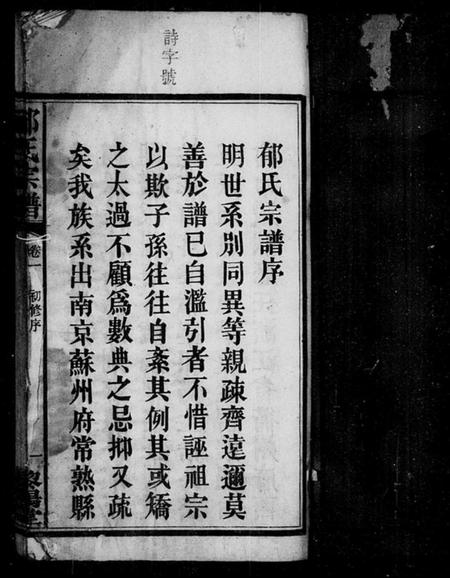 詩字號
郁氏宗譜序
明世系別同異等親疎齊遠邇莫
善於譜已自濫引者不惜誣祖宗
以欺子孫往往自紊其例其或矯
之太過不顧為數典之忌抑又疏
矣我族系出南京蘇州府常熟縣
郁氏宗譜
卷一
初修序
一
黎陽堂